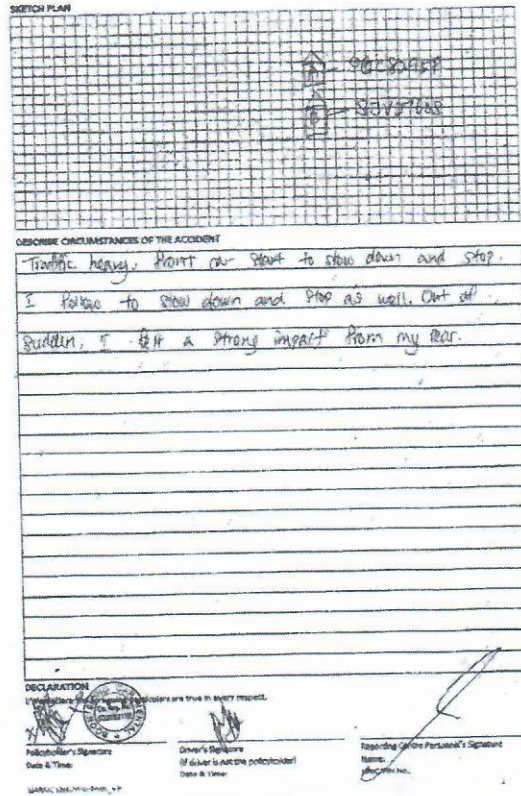 SKETCH PLAN
DESCRIBE CIRCUMSTANCES OF THE ACCIDENT
Traffic heavy. Front car start to slow down and stop.
I follow to slow down and stop as well. Out of
sudden, I felt a strong impact from my rear.
DECLARATION
particulars are true in every respect.
Policyholder's Signature
Date & Time:
Driver's Signature
(if driver is not the policyholder)
Date & Time:
Reporting Centre Personnel's Signature
Name: